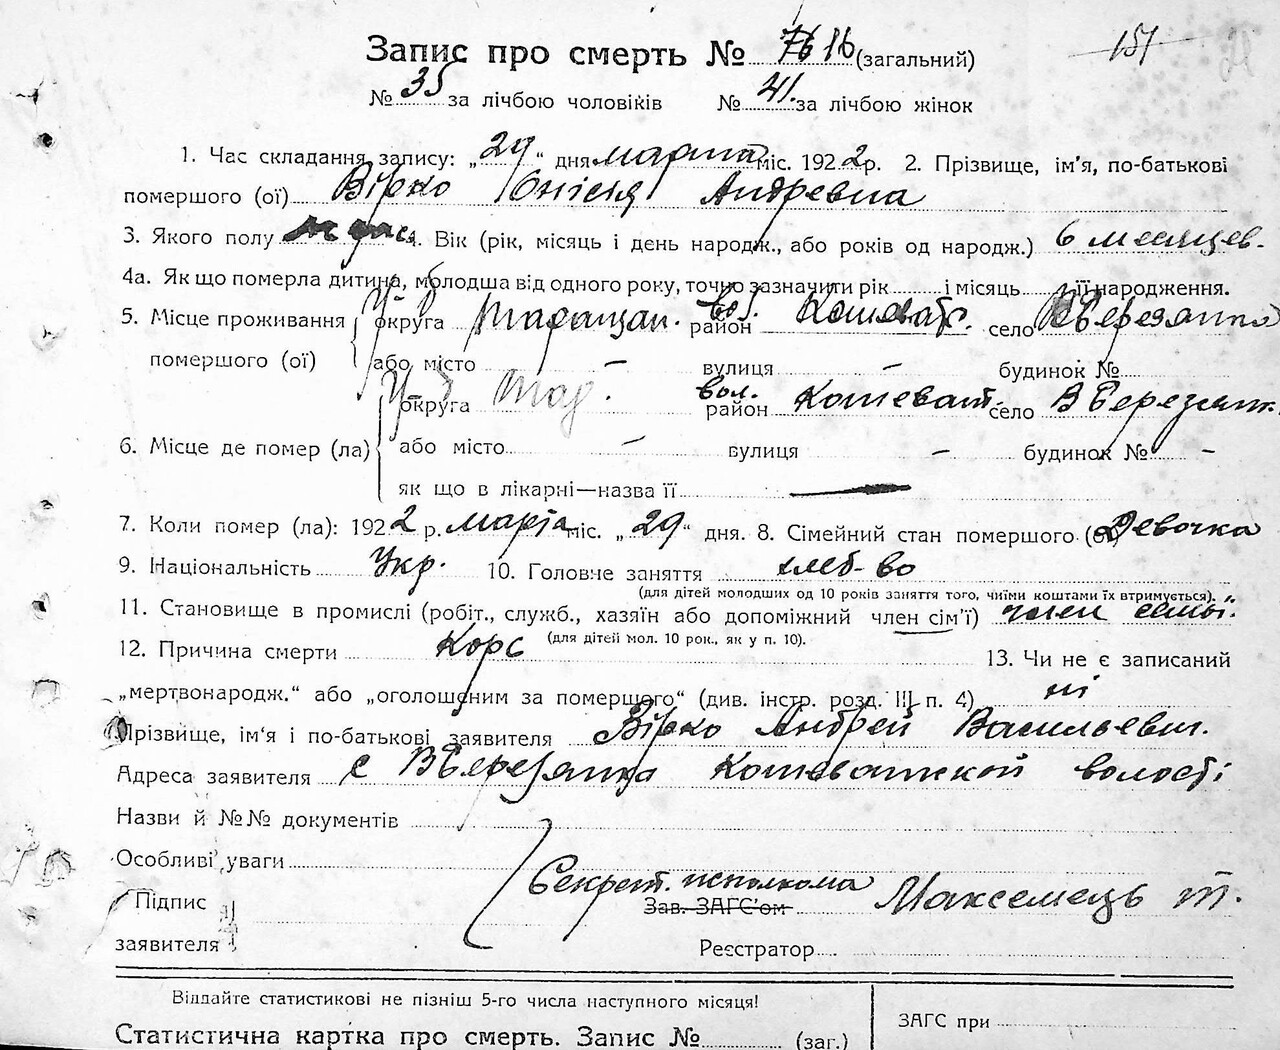 151
Запис про смерть № 76 16 (загальний)
№ 35 за лічбою чоловіків № 41. за лічбою жінок
1. Час складання запису: „29“ дня марта міс. 1922 р. 2. Прізвище, ім'я, по-батькові
помершого (ої) Вірко Онісія Андревна
3. Якого полу 4. Вік (рік, місяць і день народж., або років од народж.) 6 месяцев.
4а. Як що померла дитина, молодша від одного року, точно зазначити рік і місяць її народження.
5. Місце проживання округа Таращан. вол. район Кошеват. село ВБерезянка
помершого (ої) або місто – вулиця – будинок №
округа Тар. вол. район Кошеват. село ВБерезянк.
6. Місце де помер (ла) або місто – вулиця – будинок № -
як що в лікарні—назва її
7. Коли помер (ла): 1922 р. марта міс. „29“ дня. 8. Сімейний стан помершого Девочка
9. Національність Укр. 10. Головне заняття хлеб-во
(для дітей молодших од 10 років заняття того, чиїми коштами їх втримується).
11. Становище в промислі (робіт., служб., хазяїн або допоміжний член сім'ї) член семьї.
(для дітей мол. 10 рок., як у п. 10).
12. Причина смерти Корс 13. Чи не є записаний
„мертвонародж.“ або „оголошеним за помершого“ (див. інстр. розд. III п. 4) ні
Прізвище, ім'я і по-батькові заявителя Вірко Андрей Васильевич.
Адреса заявителя с ВБерезянка Кошеватской волості
Назви й №№ документів
Особливі уваги
Секрет. исполкома
Підпис Зав. ЗАГС'ом Максемець Т.
заявителя Реєстратор
Віддайте статистикові не пізніш 5-го числа наступного місяця!
ЗАГС при
Статистична картка про смерть. Запис № (заг.)